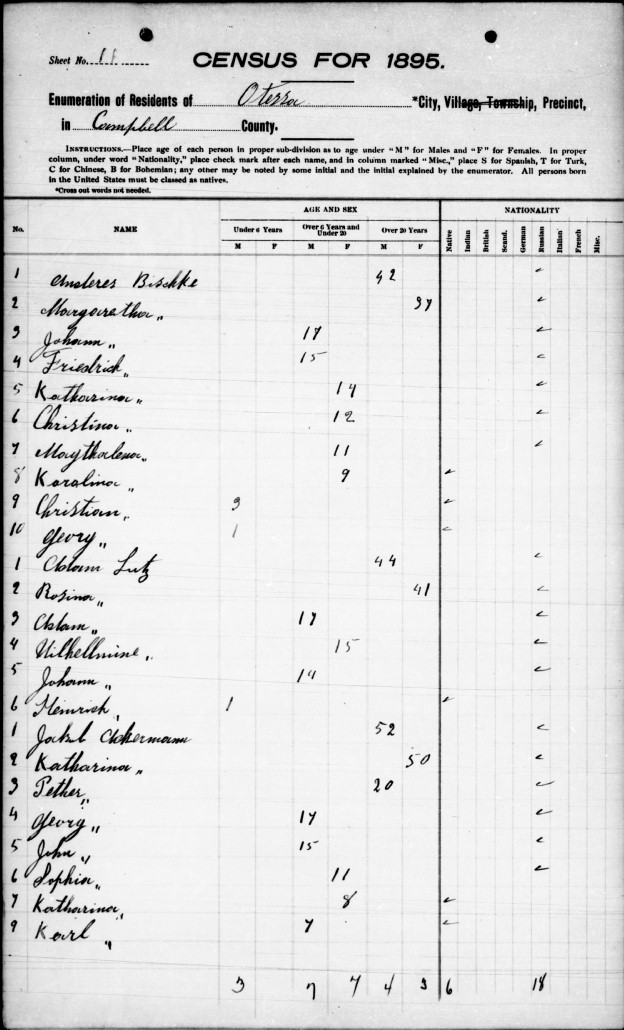 Sheet No. 11
CENSUS FOR 1895.
Enumeration of Residents of Oterra *City, Village, Township, Precinct,
in Campbell County.
INSTRUCTIONS.—Place age of each person in proper sub-division as to age under "M" for Males and "F" for Females. In proper
column, under word "Nationality," place check mark after each name, and in column marked "Misc., place S for Spanish, T for Turk,
C for Chinese, B for Bohemian; any other may be noted by some initial and the initial explained by the enumerator. All persons born
in the United States must be classed as natives.
*Cross out words not needed.
AGE AND SEX NATIONALITY
No. NAME Under 6 Years Over 6 Years and Under 20 Over 20 Years Native Indian British Scand. German Russian Italian French Misc.
M F M F M F
1 Anderes Bischke 42 ✓
2 Margaretha " 37 ✓
3 Johann " 17 ✓
4 Friedrich " 15 ✓
5 Katharina " 14 ✓
6 Christina " 12 ✓
7 Maythalena " 11 ✓
8 Karalina " 9 ✓
9 Christian " 3 ✓
10 Georg " 1 ✓
1 Adam Lutz 44 ✓
2 Rosina " 41 ✓
3 Adam " 17 ✓
4 Wilhellmine " 15 ✓
5 Johann " 14 ✓
6 Heinrich " 1 ✓
1 Jakob Ackermann 52 ✓
2 Katharina " 50 ✓
3 Pether " 20 ✓
4 Georg " 17 ✓
5 John " 15 ✓
6 Sophia " 11 ✓
7 Katharina " 8 ✓
9 Karl " 7 ✓
3 7 7 4 3 6 18